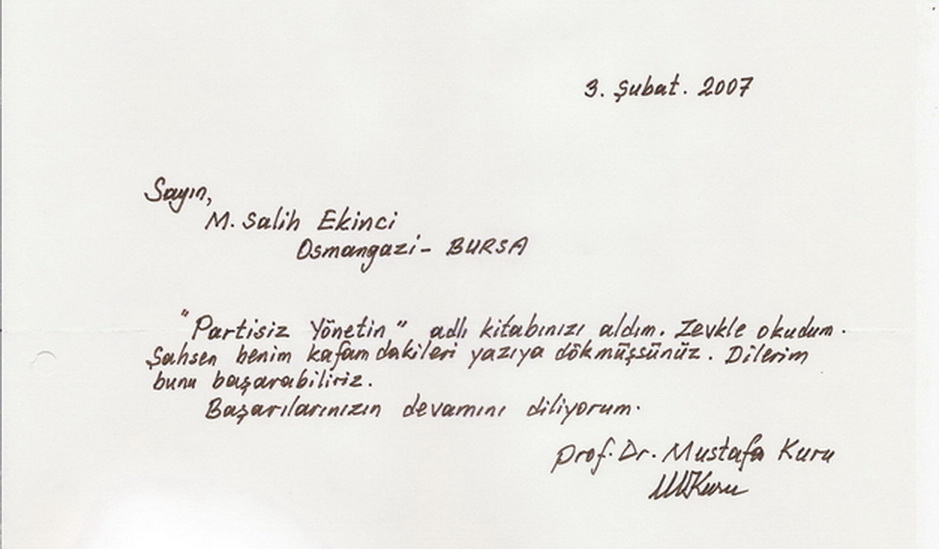 3. Şubat. 2007
Sayın,
M. Salih Ekinci
Osmangazi - BURSA
"Partisiz Yönetin" adlı kitabınızı aldım. Zevkle okudum.
Şahsen benim kafamdakileri yazıya dökmüşsünüz. Dilerim
bunu başarabiliriz.
Başarılarınızın devamını diliyorum.
Prof. Dr. Mustafa Kuru
MKuru